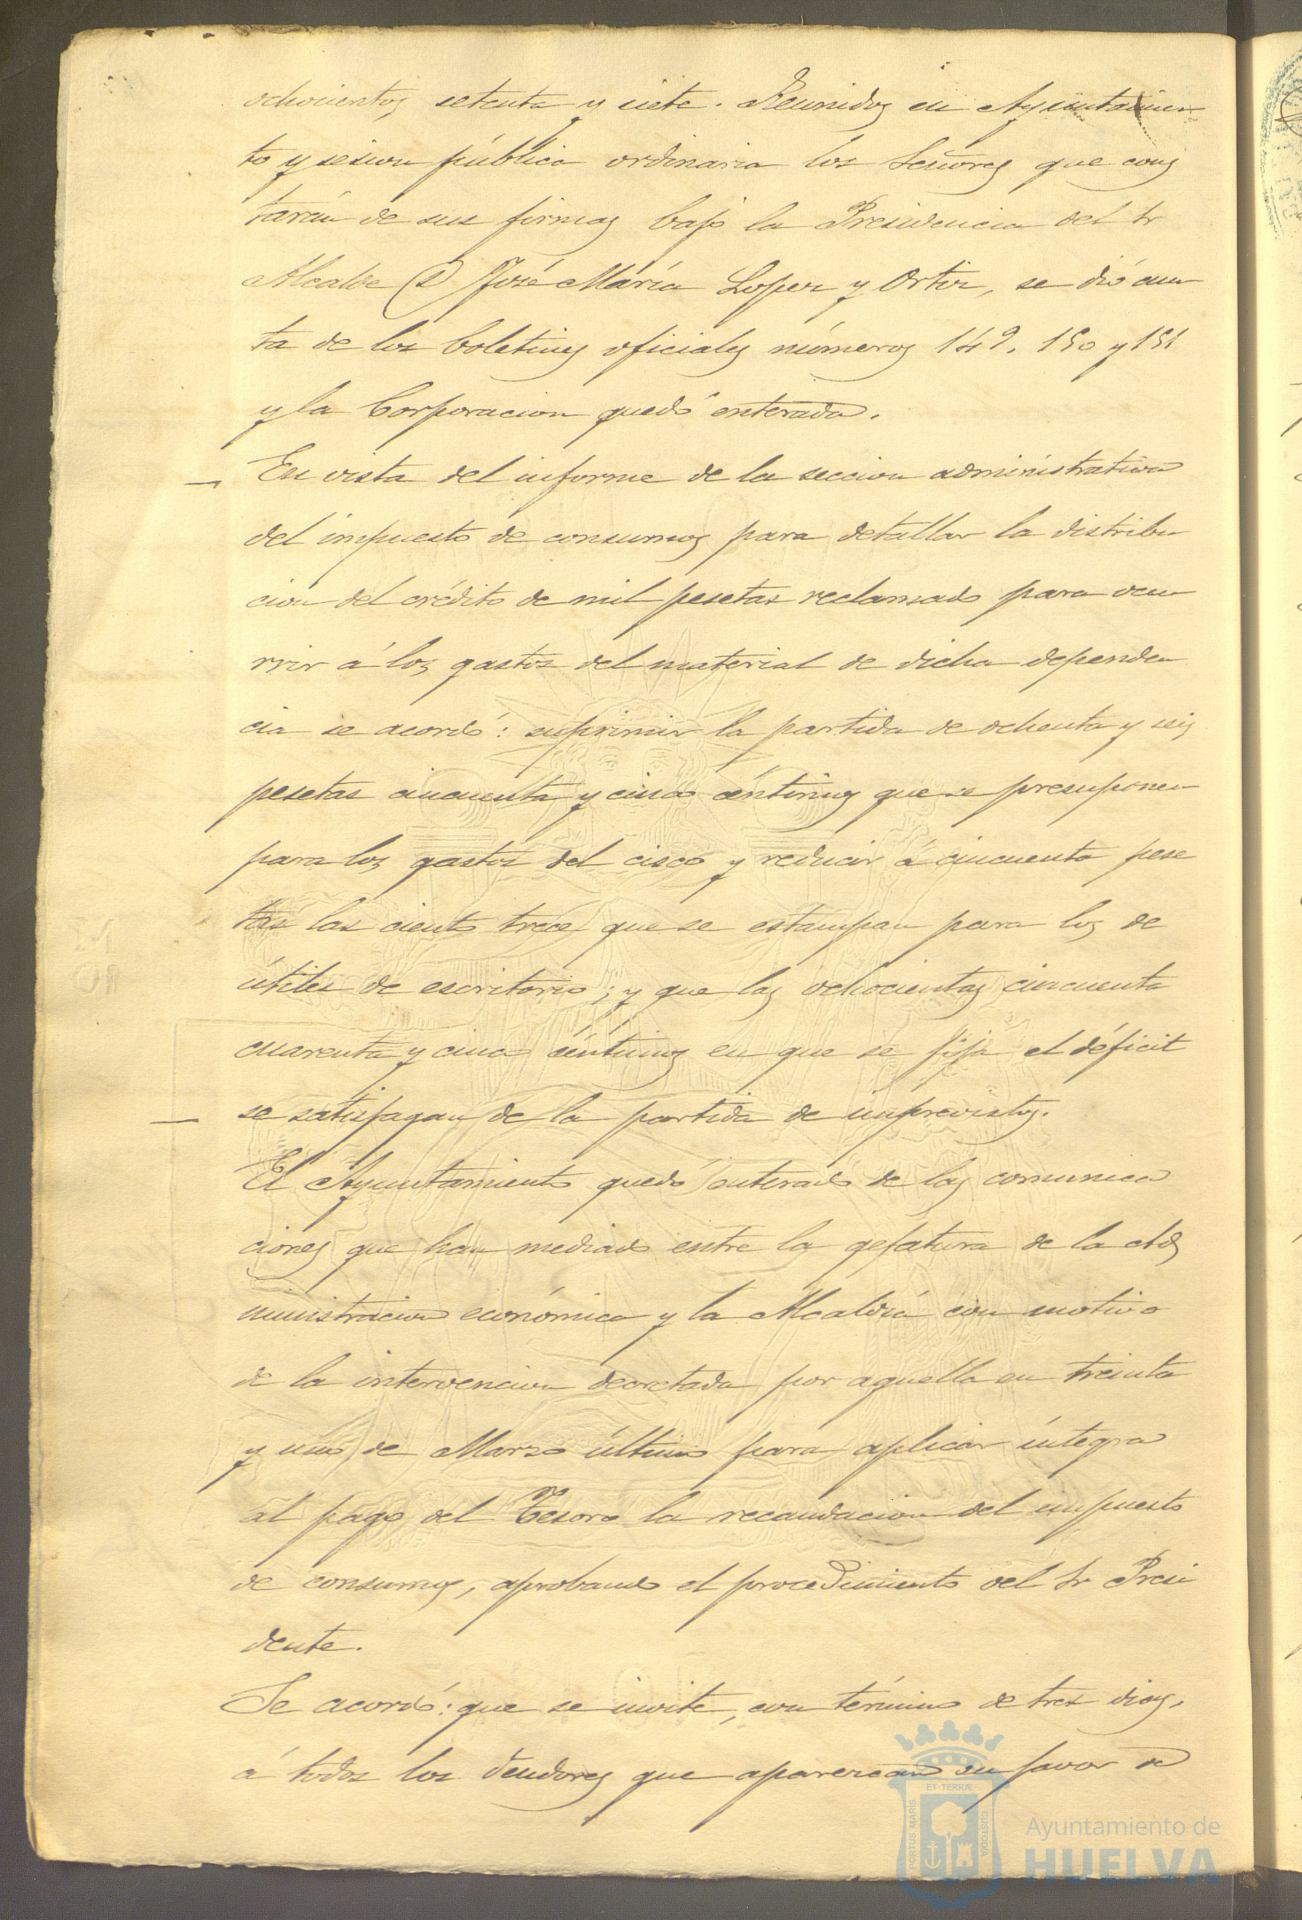 ochocientos setenta y siete. Reunidos en Ayuntamien
to y sesion pública ordinaria los Señores que cons
tarán de sus firmas bajo la Presidencia del Sr
Alcalde D José María Lopez y Ortiz, se dió cuen
ta de los boletines oficiales números 149. 150 y 151
y la Corporacion quedó enterada.
En vista del informe de la seccion administrativa
del impuesto de consumos para detallar la distribu
cion del crédito de mil pesetas reclamado para ocu
rrir á los gastos del material de dicha dependen
cia se acordó: suprimir la partida de ochenta y seis
pesetas cincuenta y cinco céntimos que se presuponen
para los gastos del cisco y reducir á cincuenta pese
tas las ciento trece que se estampan para los de
útiles de escritorio; y que las ochocientas cincuenta
cuarenta y cinco céntimos en que se fija el déficit
se satisfagan de la partida de imprevistos.
El Ayuntamiento quedó enterado de las comunica
ciones que han mediado entre la gefatura de la Ad
ministracion económica y la Alcaldía con motivo
de la intervencion decretada por aquella en treinta
y uno de Marzo último para aplicar íntegra
al pago del Tesoro la recaudacion del impuesto
de consumos, aprobando el procedimiento del Sr Presi
dente.
Se acordó: que se invite, con término de tres dias,
á todos los deudores que aparezcan en favor de
ET TERRÆ
PORTUS MARIS
CUSTODIA
Ayuntamiento de
HUELVA